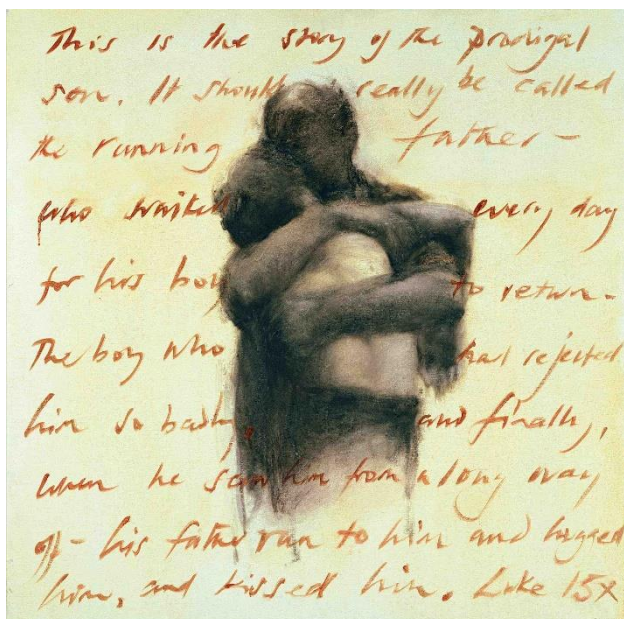 This is the story of the prodigal
son. It should really be called
the running father -
who waited every day
for his boy to return.
The boy who had rejected
him so badly, and finally,
when he saw him from a long way
off - his father run to him and hugged
him, and kissed him. Luke 15